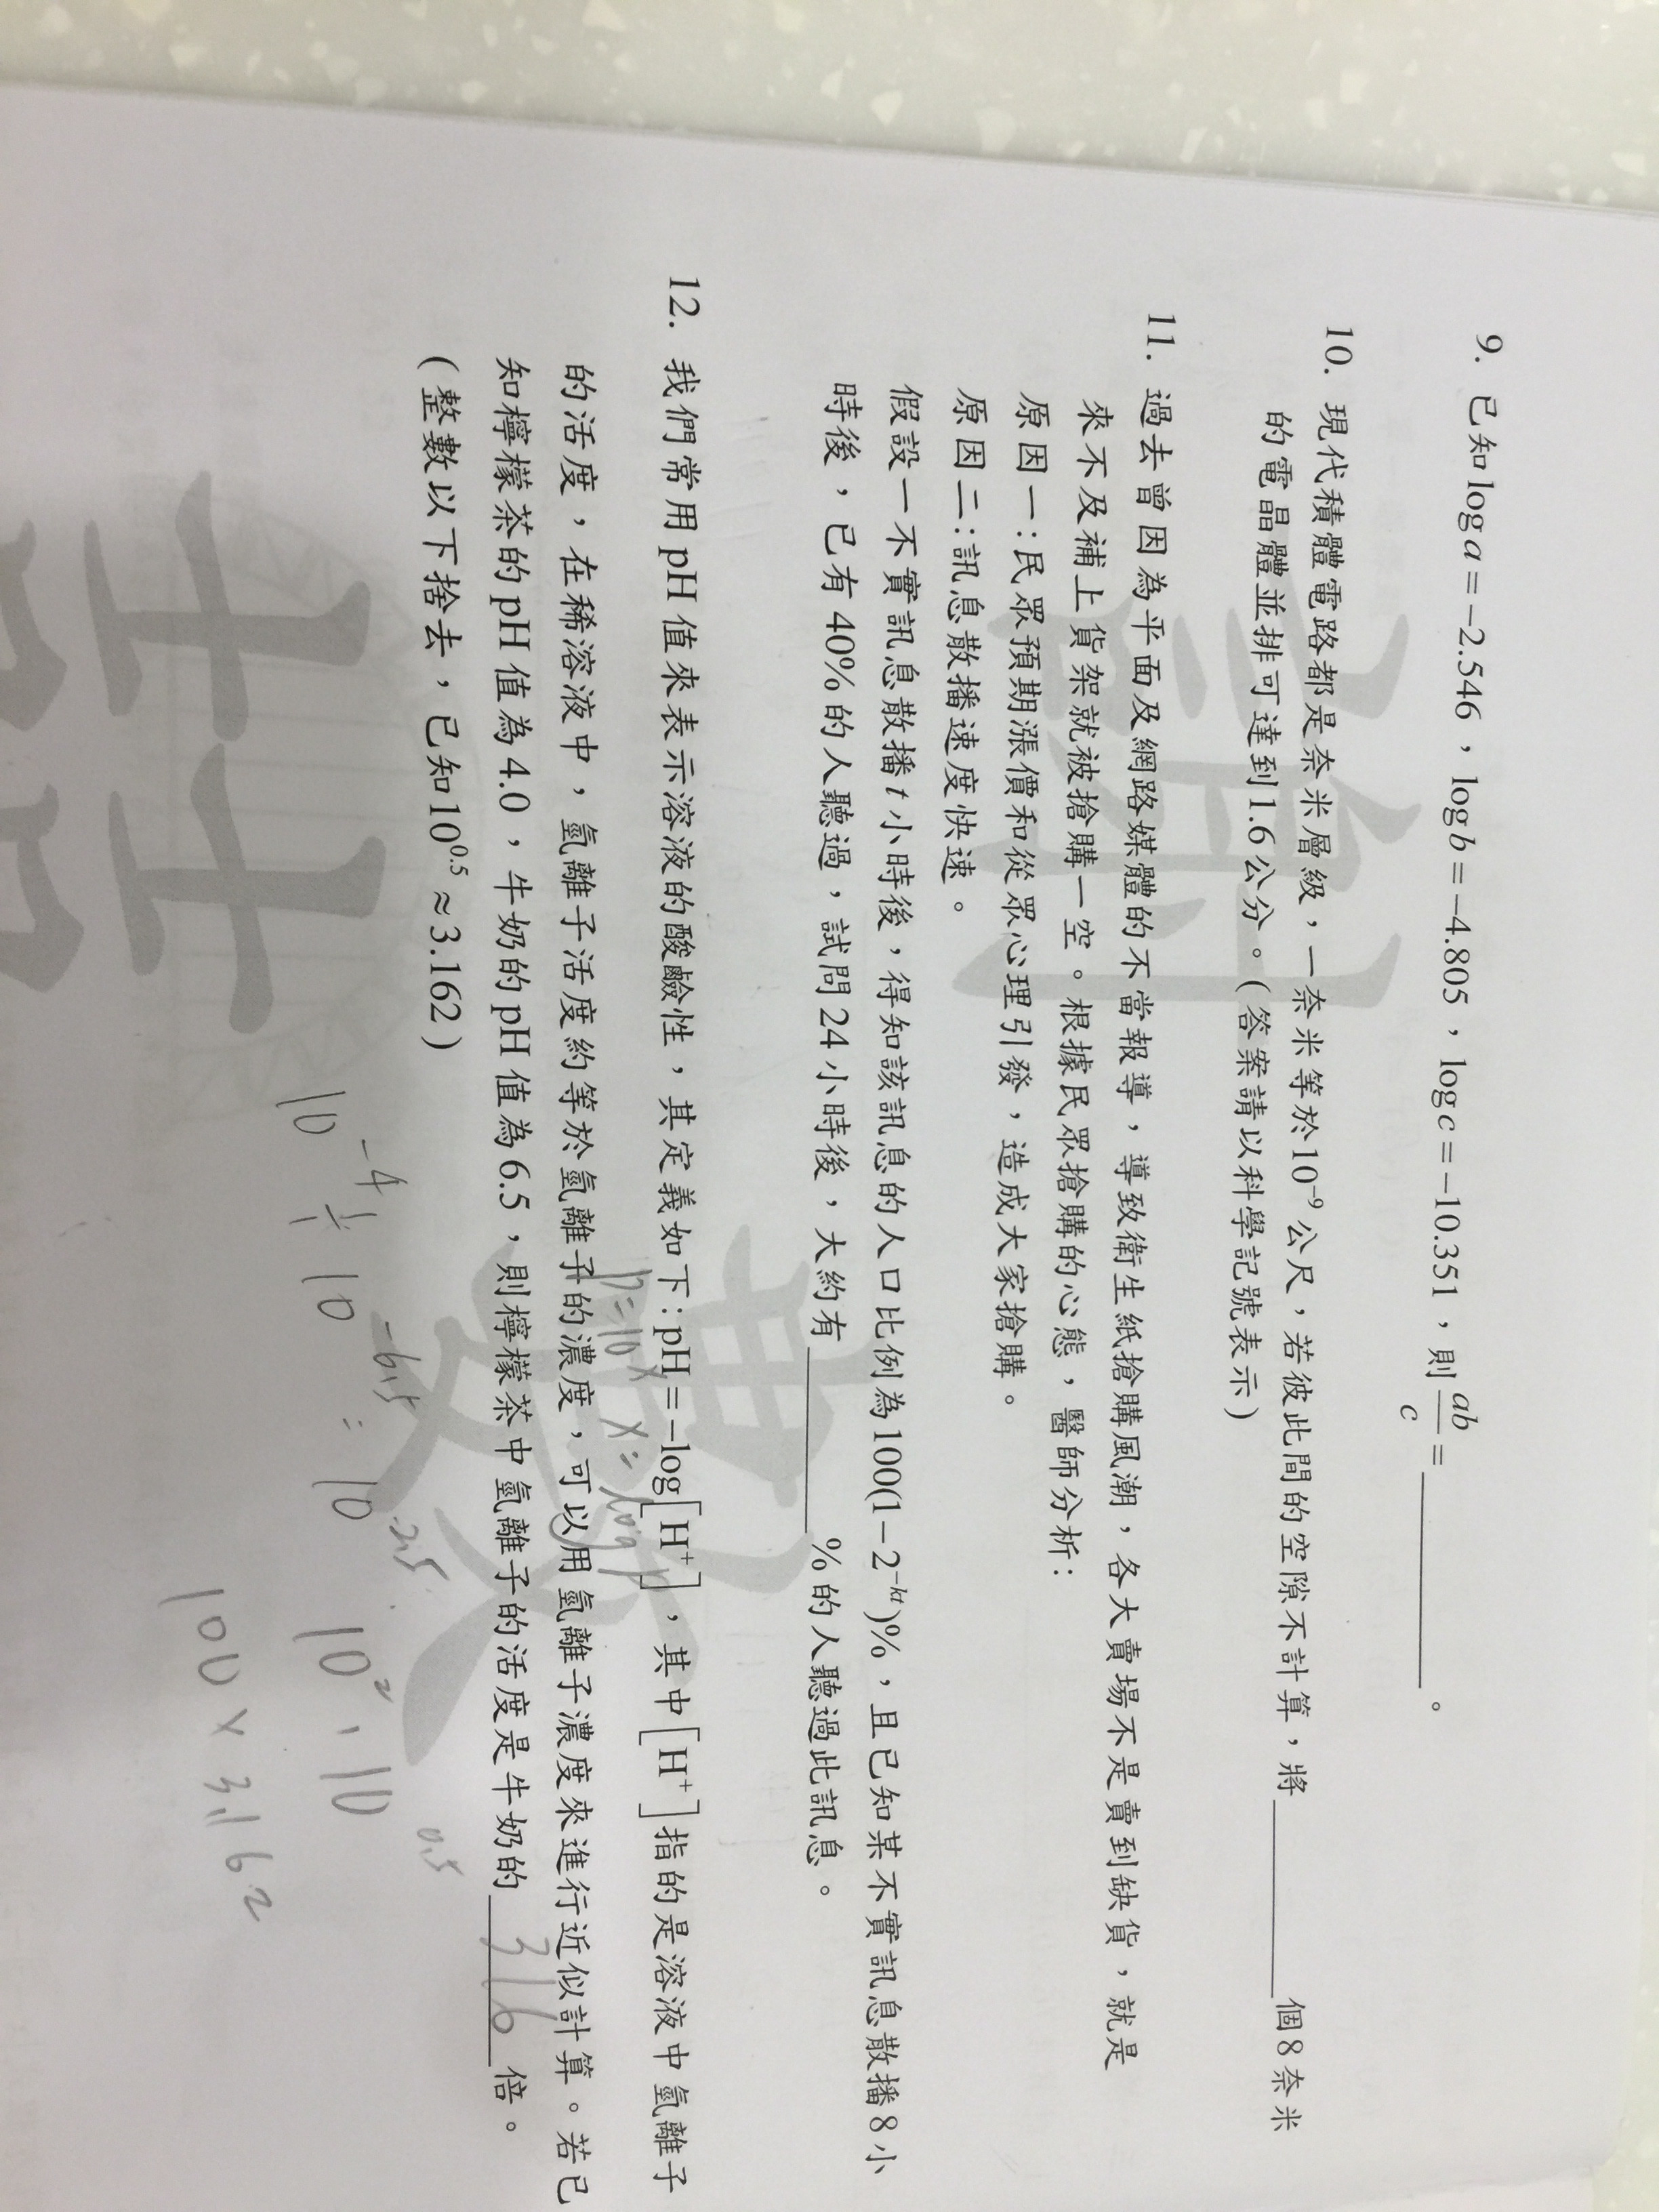 9. 已知 log a = −2.546，log b = −4.805，log c = −10.351，則 ab/c = ________。
10. 現代積體電路都是奈米層級，一奈米等於10⁻⁹公尺，若彼此間的空隙不計算，將________個8奈米
的電晶體並排可達到1.6公分。(答案請以科學記號表示)
11. 過去曾因為平面及網路媒體的不當報導，導致衛生紙搶購風潮，各大賣場不是賣到缺貨，就是
來不及補上貨架就被搶購一空。根據民眾搶購的心態，醫師分析：
原因一：民眾預期漲價和從眾心理引發，造成大家搶購。
原因二：訊息散播速度快速。
假設一不實訊息散播 t 小時後，得知該訊息的人口比例為100(1−2⁻ᵏᵗ)%，且已知某不實訊息散播8小
時後，已有40%的人聽過，試問24小時後，大約有________%的人聽過此訊息。
12. 我們常用pH值來表示溶液的酸鹼性，其定義如下：pH = −log[H⁺]，其中[H⁺]指的是溶液中氫離子
p=10ˣ x=log p
的活度，在稀溶液中，氫離子活度約等於氫離子的濃度，可以用氫離子濃度來進行近似計算。若已
知檸檬茶的pH值為4.0，牛奶的pH值為6.5，則檸檬茶中氫離子的活度是牛奶的 316 倍。
(整數以下捨去，已知10⁰·⁵ ≈ 3.162)
10⁻⁴ ÷ 10⁻⁶·⁵ = 10²·⁵ 10² · 10⁰·⁵
100 × 3.162